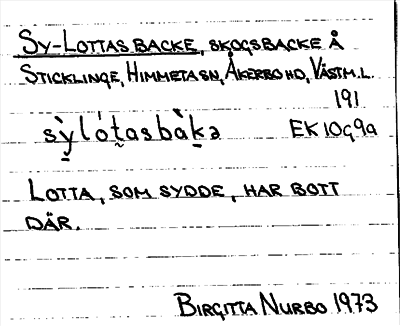 SY-LOTTAS BACKE, SKOGSBACKE Å
STICKLINGE, HIMMETA SN, ÅKERBO HD, VÄSTM.L.
191
sỳlót̰asbàkə EK 10g9a
LOTTA, SOM SYDDE, HAR BOTT
DÄR.
BIRGITTA NURBO 1973